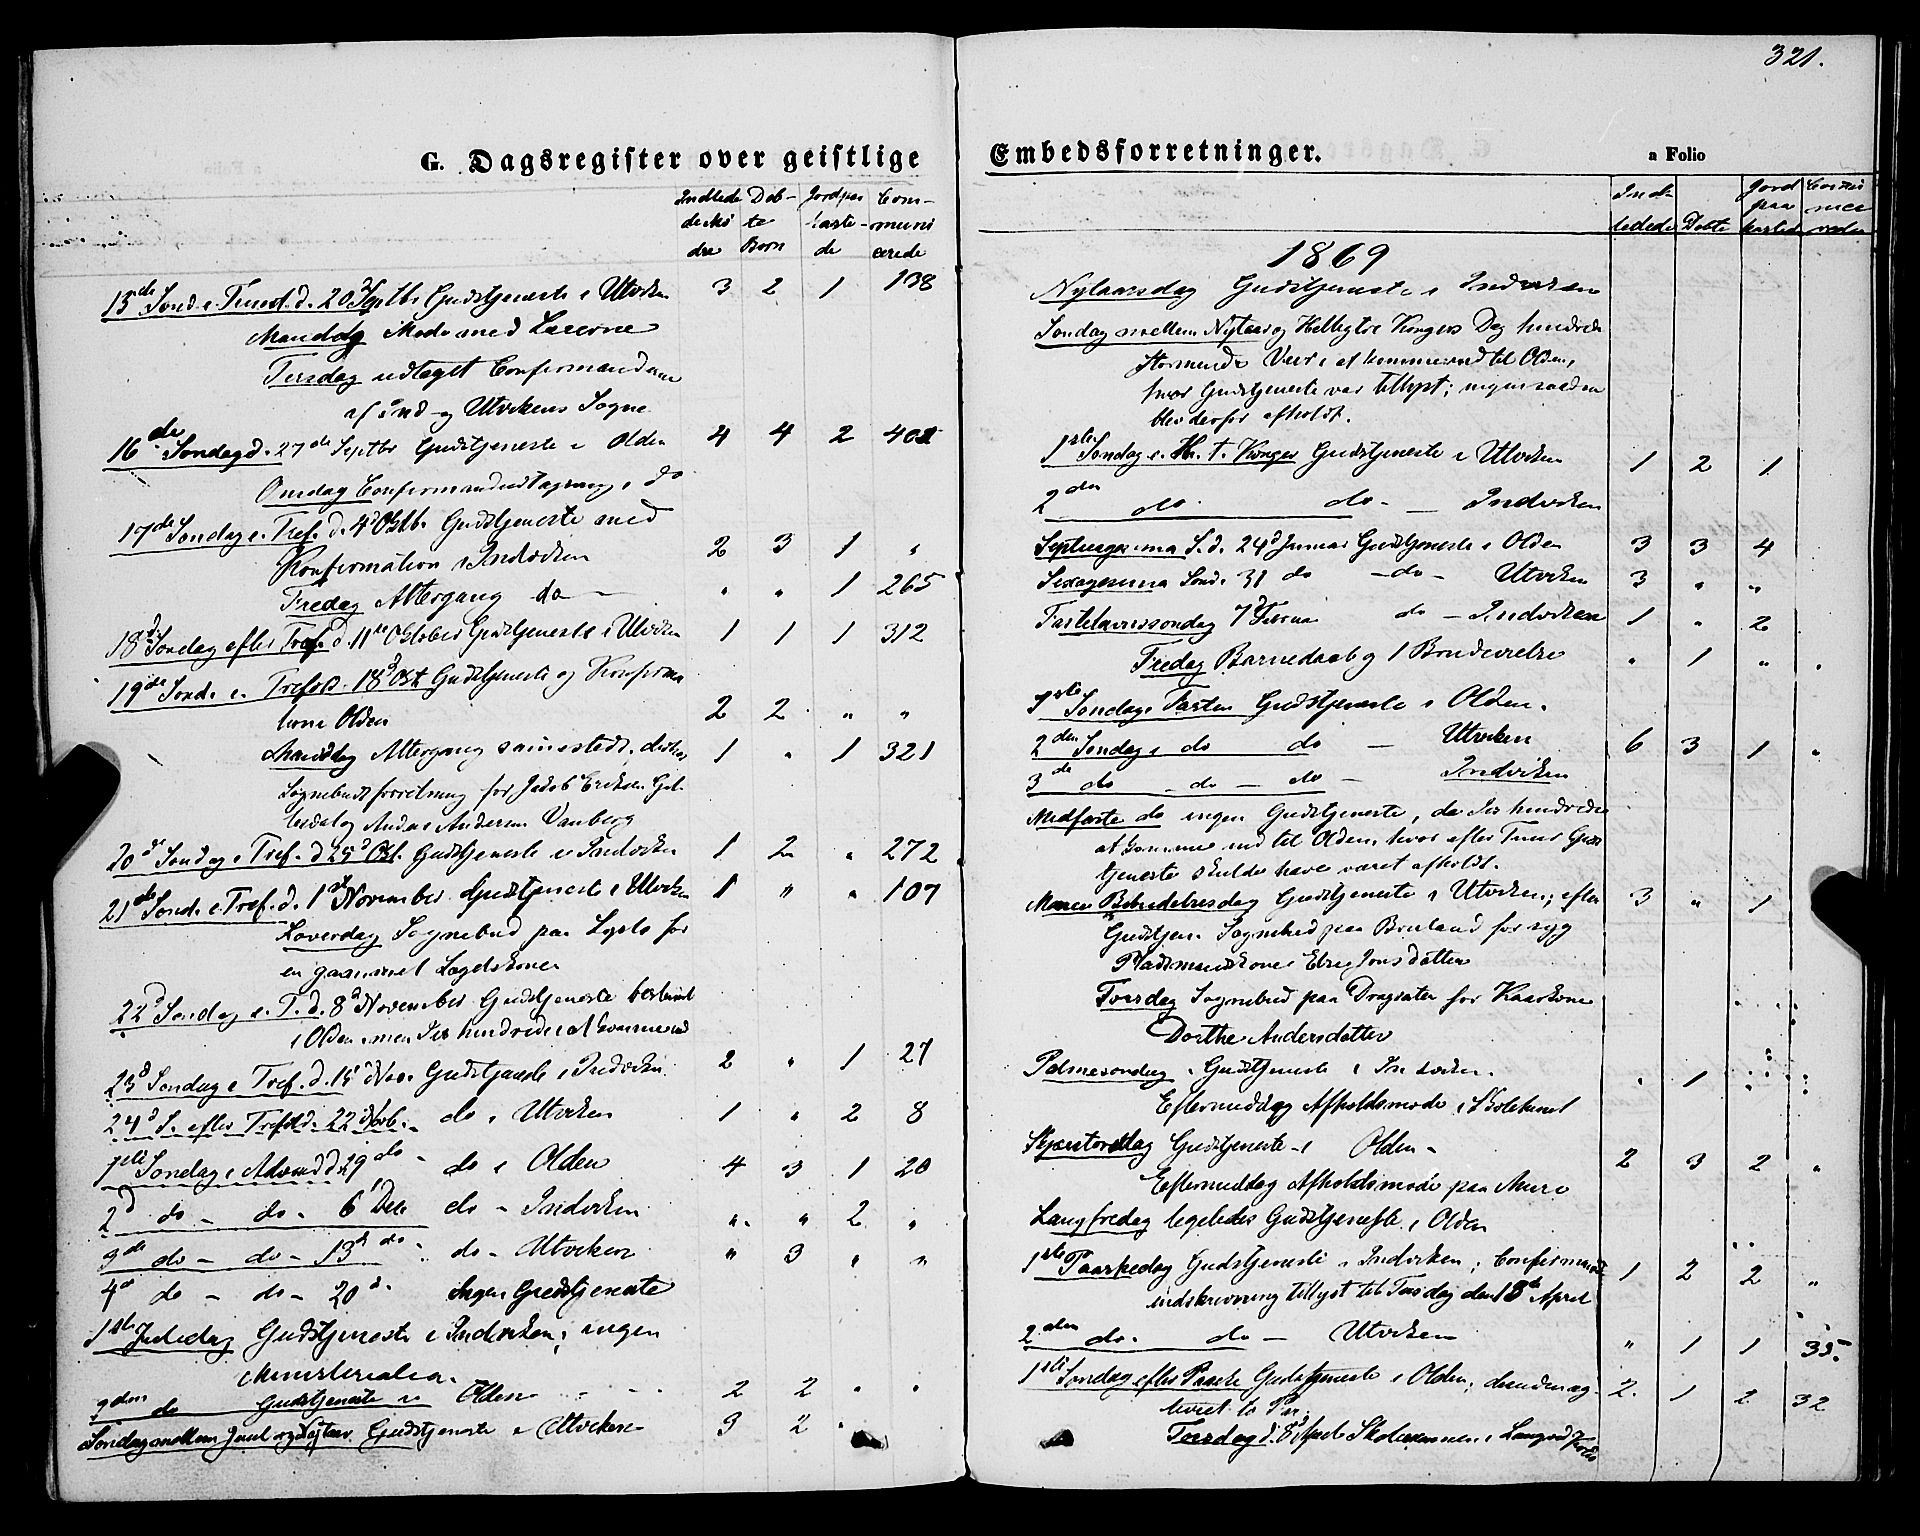 321.
G. Dagsregister over geistlige
Indlede Døb- Jordpaa Com-
te kaste- muni
dre Børn de cerede
15de Sønd. e. d. 20d Septbr Gudstjeneste i Utviken 3 2 1 138
Mandag Møde med Lærerne
Tirsdag udtaget Confirmanderne
af Ind- og Utvikens Sogne
16de Søndag d. 27de Septbr Gudstjeneste i Olden 4 4 2 402
Onsdag i do
17de Søndag e. Tref. d. 4d Octb. Gudstjeneste med
Konfirmation i Indviken 2 3 1 "
Fredag Altergang do " " 1 265
18de Søndag efter Tref. d. 11te October Gudstjeneste i Utviken 1 1 1 312
19de Sønd. e. Trefold. 18d Oct Gudstjeneste og Konfirma
tion i Olden 2 2 " "
Mandag Altergang sammesteds, 1 " 1 321
Sognebudsforretning for Jacob Eriksen
og Anders Andersen
20de Søndag e. Tref. d. 25d Oct. Gudstjeneste i Indviken 1 2 " 272
21de Sønd. e. Tref. d. 1st November Gudstjeneste i Utviken 1 " " 107
Løverdag Sognebud paa for
en gammel Lægdskone
22d Søndag e. T. d. 8d November Gudstjeneste bestemt
i Olden, men Iis hindrede i at komme ind
23d Søndag e. Tref. d. 15d Nov. Gudstjeneste i Indviken 2 " 1 27
24d S. efter Trefold. 22d Novb. do i Utviken 1 " 2 8
1ste Søndag i Advend d. 29de do i Olden 4 3 1 20
2d do - do - 6d Decb do - Indviken " " 2 "
3de do - do - 13de do - do - Utviken " 3 " "
4de do - do - 20d Ingen Gudstjeneste
1ste Juledag Gudstjeneste i Indviken, ingen
Ministerialia.
2den do Gudstjeneste i Olden 2 2 " "
Søndag mellem Juul og Nytaar Gudstjeneste i Utviken 3 2 "
Embedsforretninger.
a Folio
Ind- Jord
paa
ledede Døbte kastede
1869
Nytaarsdag Gudstjeneste i Indviken
Søndag mellem Nytaar og Helligtre Kongers Dag hindrede
stormende Veir i at komme ind til Olden,
hvor Gudstjeneste var tillyst; ingen saadan
blev derfor afholdt.
1ste Søndag e. H. t. Konger Gudstjeneste i Utviken 1 2 1
2den do do - Indviken
Septuagesima S. d. 24d Januar Gudstjeneste i Olden 3 3 4
Sexagesima Sønd. 31 do - do - Utviken 3 " "
Fastelavnssøndag 7d Februar do - Indviken 1 " 2
Fredag Barnedaab og 1 Brudevielse " 1 " "
1ste Søndag i Fasten Gudstjeneste i Olden.
2den Søndag i do do - Utviken 6 3 1 "
3de do - do - do - Indviken
Midfaste do ingen Gudstjeneste, da Iis hindrede
at komme ind til Olden, hvor efter Tuur Guds
tjeneste skulde have været afholdt.
Mariæ Bebudelsesdag Gudstjeneste i Utviken; efter 3 " 1
Gudstjen. Sognebud paa Bruland for syg
Pladsmandskone Jonsdatter
Torsdag Sognebud paa for Kaarkone
Dorthe Andersdatter
Palmesøndag Gudstjeneste i Indviken. " 1
Eftermiddag Afholdsmøde i Skolehuset
Skjærtorsdag Gudstjeneste i Olden - 2 3 2 "
Eftermiddag Afholdsmøde paa Muri
Langfredag ligeledes Gudstjeneste i Olden
1ste Paaskedag Gudstjeneste i Indviken; Confirmand 1 2 2 "
indskrivning tillyst til Tirsdag den 13de April
2den do. do - Utviken " 1 1 35.
1ste Søndag efter Paaske Gudstjeneste i Olden; 2. 1 2 32
viet to Par.
Torsdag d. 8d April i